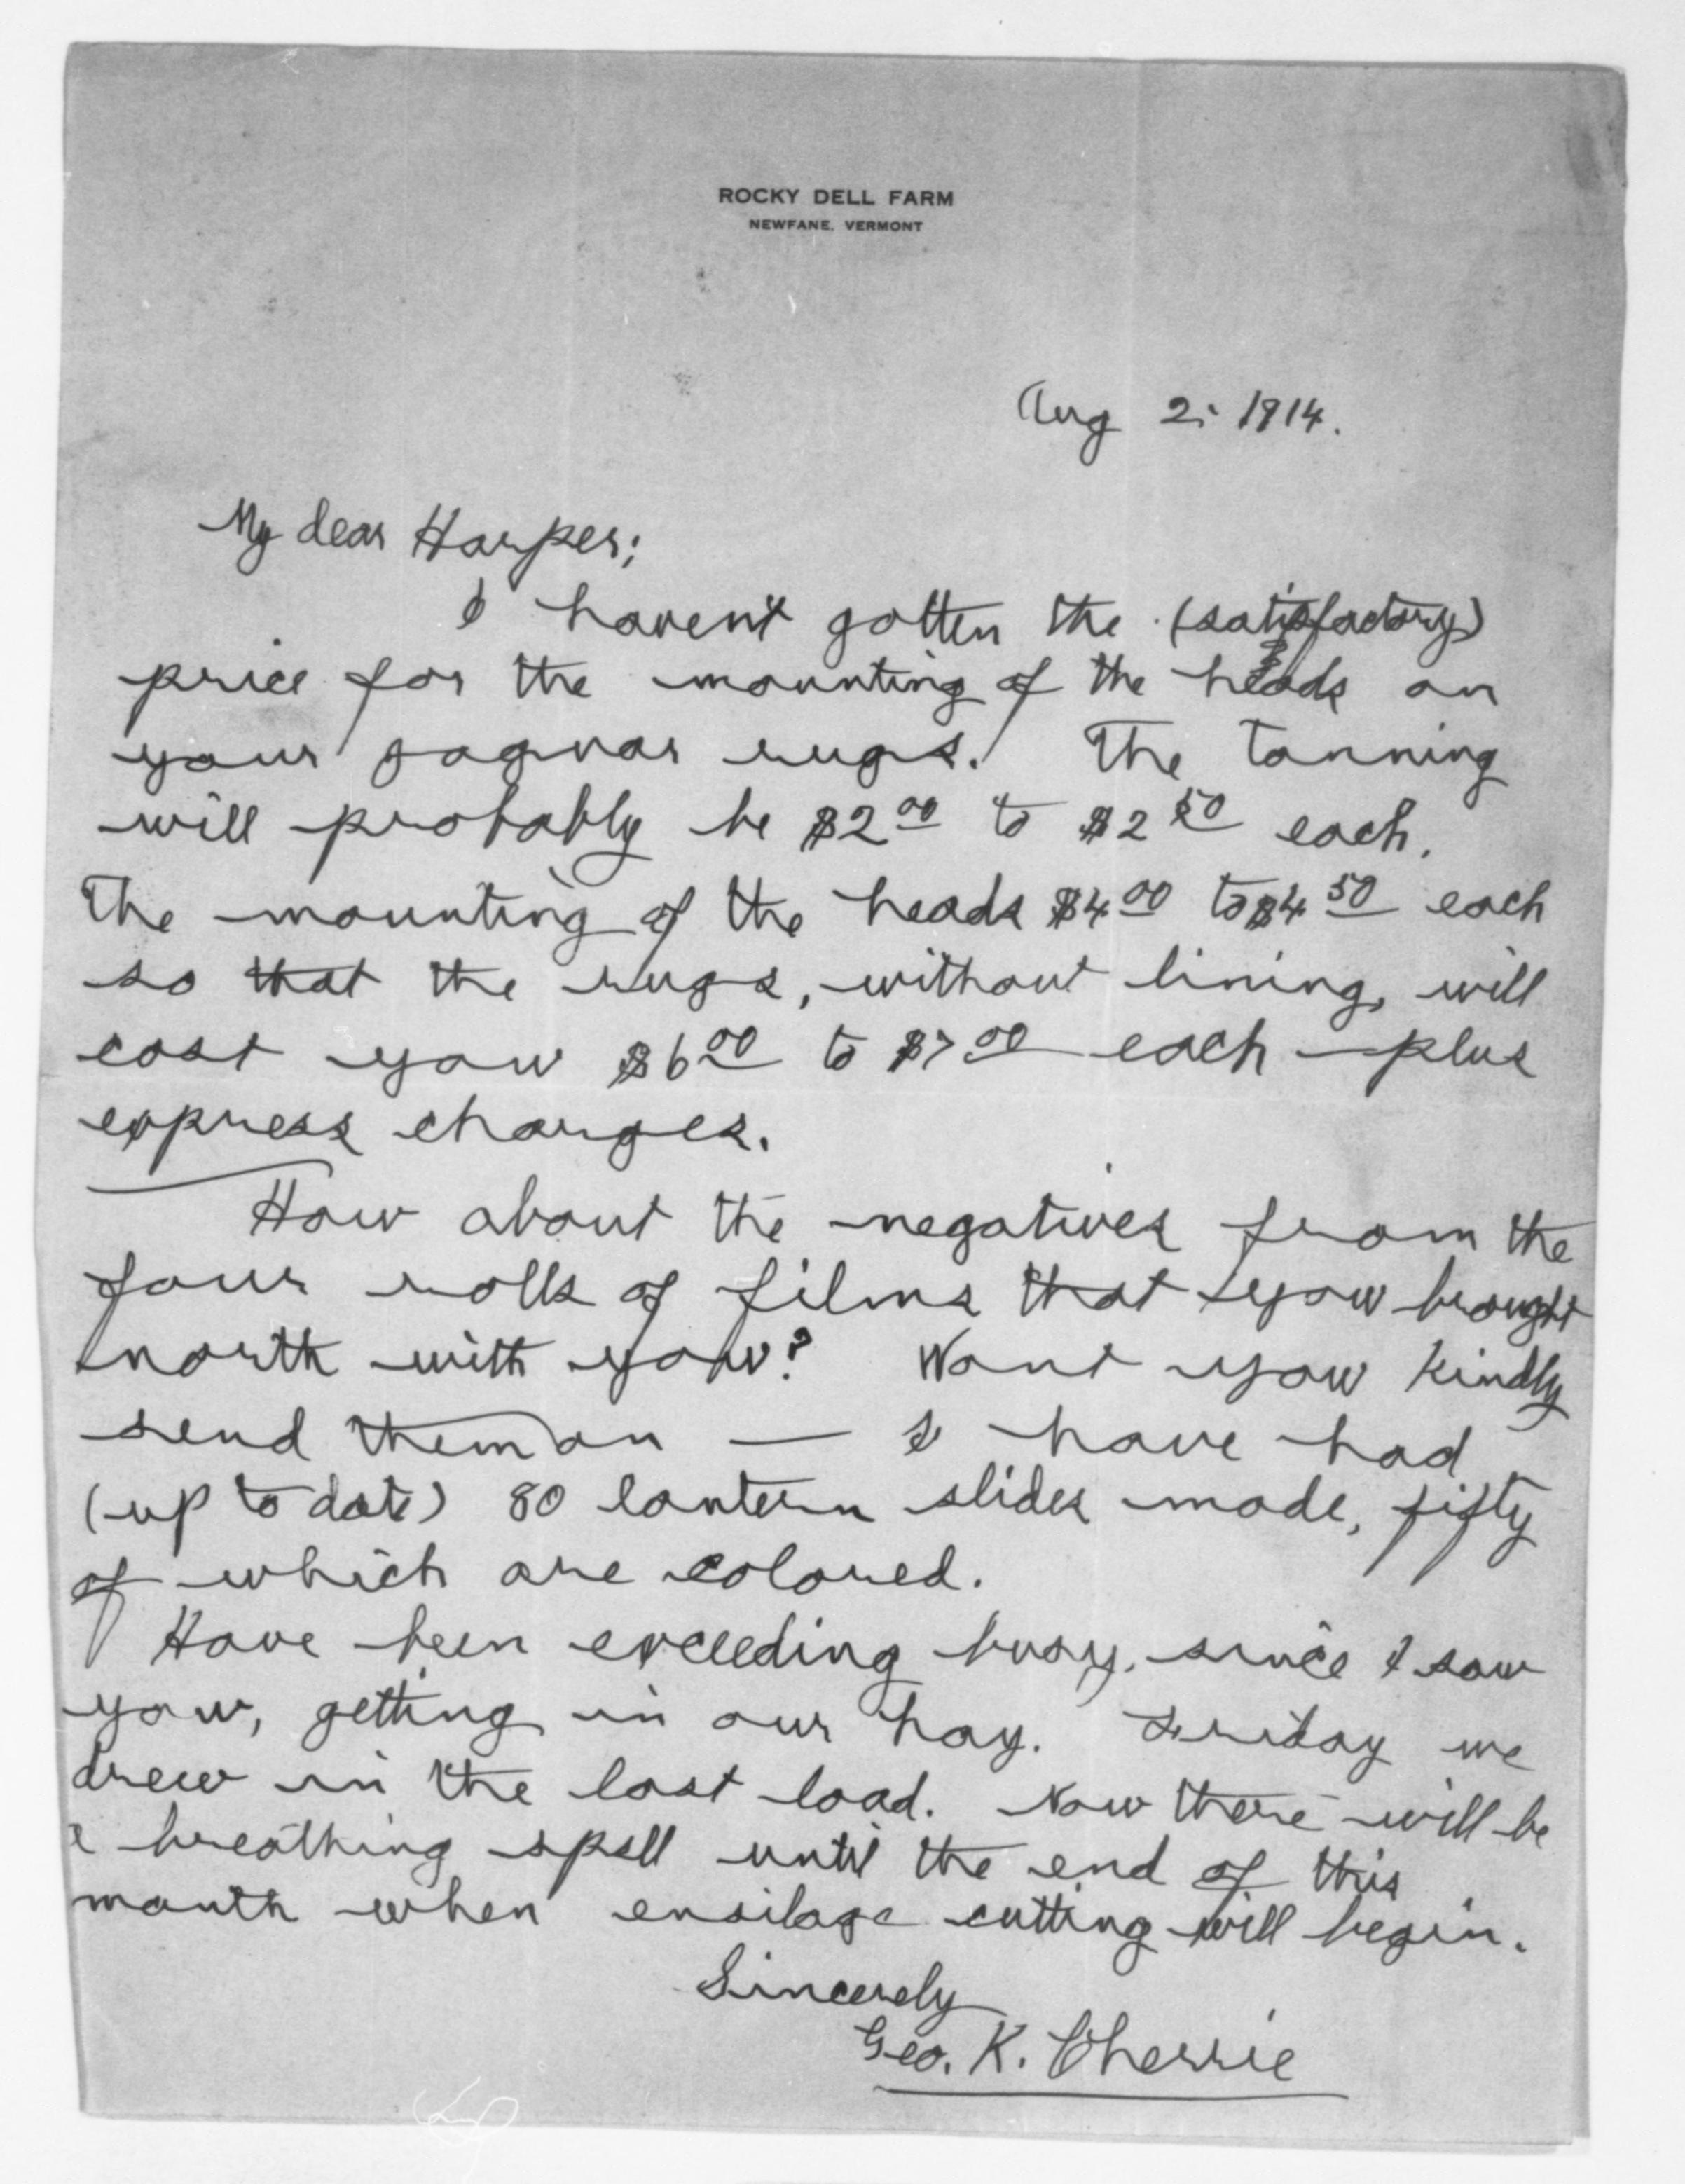 ROCKY DELL FARM
NEWFANE, VERMONT
Aug 2; 1914.
My dear Harper;
I haven't gotten the (satisfactory)
price for the mounting of the heads on
your jaguar rugs. The tanning
will probably be $2 00 to $2 50 each.
The mounting of the heads $4 00 to $4 50 each
so that the rugs, without lining, will
cost you $6 00 to $7 00 each plus
express charges.
How about the negatives from the
four rolls of films that you brought
north with you? Wont you kindly
send them on — I have had
(up to date) 80 lantern slides made, fifty
of which are colored.
Have been exceeding busy, since I saw
you, getting in our hay. Friday we
drew in the last load. Now there will be
a breathing spell until the end of this
month when ensilage cutting will begin.
Sincerely
Geo. K. Cherrie